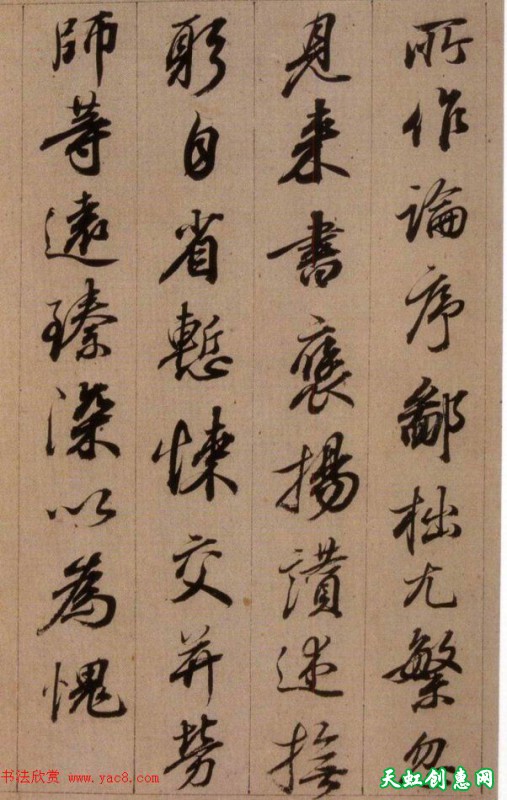 所作論序鄙拙尤繁忽
見来書褒揚讃述撫
躬自省慙悚交并勞
師等遠臻深以為愧
书法欣赏 www.yac8.com
天虹创惠网